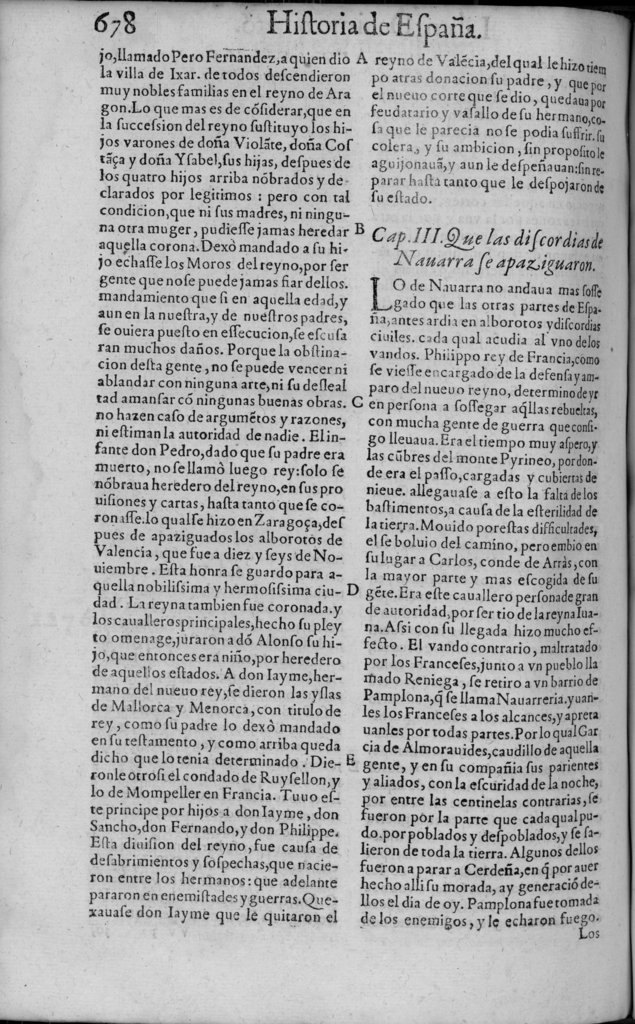 678 Historia de España.
jo, llamado Pero Fernandez, a quien dio
la villa de Ixar. de todos descendieron
muy nobles familias en el reyno de Ara
gon. Lo que mas es de cõsiderar, que en
la succession del reyno sustituyo los hi-
jos varones de doña Violãte, doña Cos
tãça y doña Ysabel, sus hijas, despues de
los quatro hijos arriba nõbrados y de-
clarados por legitimos : pero con tal
condicion, que ni sus madres, ni ningu-
na otra muger, pudiesse jamas heredar
aquella corona. Dexò mandado a su hi-
jo echasse los Moros del reyno, por ser
gente que no se puede jamas fiar dellos.
mandamiento que si en aquella edad, y
aun en la nuestra, y de nuestros padres,
se ouiera puesto en essecucion, se escusa
ran muchos daños. Porque la obstina-
cion desta gente, no se puede vencer ni
ablandar con ninguna arte, ni su desleal
tad amansar cõ ningunas buenas obras.
no hazen caso de argumẽtos y razones,
ni estiman la autoridad de nadie. El in-
fante don Pedro, dado que su padre era
muerto, no se llamò luego rey: solo se
nõbraua heredero del reyno, en sus pro
uisiones y cartas, hasta tanto que se co-
ronasse. lo qual se hizo en Zaragoça, des
pues de apaziguados los alborotos de
Valencia, que fue a diez y seys de No-
uiembre. Esta honra se guardo para a-
quella nobilissima y hermosissima ciu-
dad. La reyna tambien fue coronada. y
los caualleros principales, hecho su pley
to omenage, juraron a dõ Alonso su hi-
jo, que entonces era niño, por heredero
de aquellos estados. A don Iayme, her-
mano del nueuo rey, se dieron las yslas
de Mallorca y Menorca, con titulo de
rey, como su padre lo dexò mandado
en su testamento, y como arriba queda
dicho que lo tenia determinado. Die-
ronle otrosi el condado de Ruysellon, y
lo de Mompeller en Francia. Tuuo es-
te principe por hijos a don Iayme, don
Sancho, don Fernando, y don Philippe.
Esta diuision del reyno, fue causa de
desabrimientos y sospechas, que nacie-
ron entre los hermanos: que adelante
pararon en enemistades y guerras. Que-
xauase don Iayme que le quitaron el
A
B
C
D
E
reyno de Valẽcia, del qual le hizo tiem
po atras donacion su padre, y que por
el nueuo corte que se dio, quedaua por
feudatario y vasallo de su hermano, co-
sa que le parecia no se podia suffrir. su
colera, y su ambicion, sin proposito le
aguijonauã, y aun le despeñauan: sin re-
parar hasta tanto que le despojaron de
su estado.
Cap. III. Que las discordias de
Nauarra se apaziguaron.
LO de Nauarra no andaua mas sosse
gado que las otras partes de Espa-
ña, antes ardia en alborotos y discordias
ciuiles. cada qual acudia al vno de los
vandos. Philippo rey de Francia, como
se viesse encargado de la defensa y am-
paro del nueuo reyno, determino de yr
en persona a sossegar aq̃llas rebueltas,
con mucha gente de guerra que consi-
go lleuaua. Era el tiempo muy aspero, y
las cũbres del monte Pyrineo, por don-
de era el passo, cargadas y cubiertas de
nieue. allegauase a esto la falta de los
bastimentos, a causa de la esterilidad de
la tierra. Mouido por estas difficultades,
el se boluio del camino, pero embio en
su lugar a Carlos, conde de Arràs, con
la mayor parte y mas escogida de su
gẽte. Era este cauallero persona de gran
de autoridad, por ser tio de la reyna Iua-
na. Assi con su llegada hizo mucho ef-
fecto. El vando contrario, maltratado
por los Franceses, junto a vn pueblo lla
mado Reniega, se retiro a vn barrio de
Pamplona, q̃ se llama Nauarreria. yuan-
les los Franceses a los alcances, y apreta
uanles por todas partes. Por lo qual Gar
cia de Almorauides, caudillo de aquella
gente, y en su compañia sus parientes
y aliados, con la escuridad de la noche,
por entre las centinelas contrarias, se
fueron por la parte que cada qual pu-
do. por poblados y despoblados, y se sa-
lieron de toda la tierra. Algunos dellos
fueron a parar a Cerdeña, en q̃ por auer
hecho alli su morada, ay generació de-
llos el dia de oy. Pamplona fue tomada
de los enemigos, y le echaron fuego.
Los